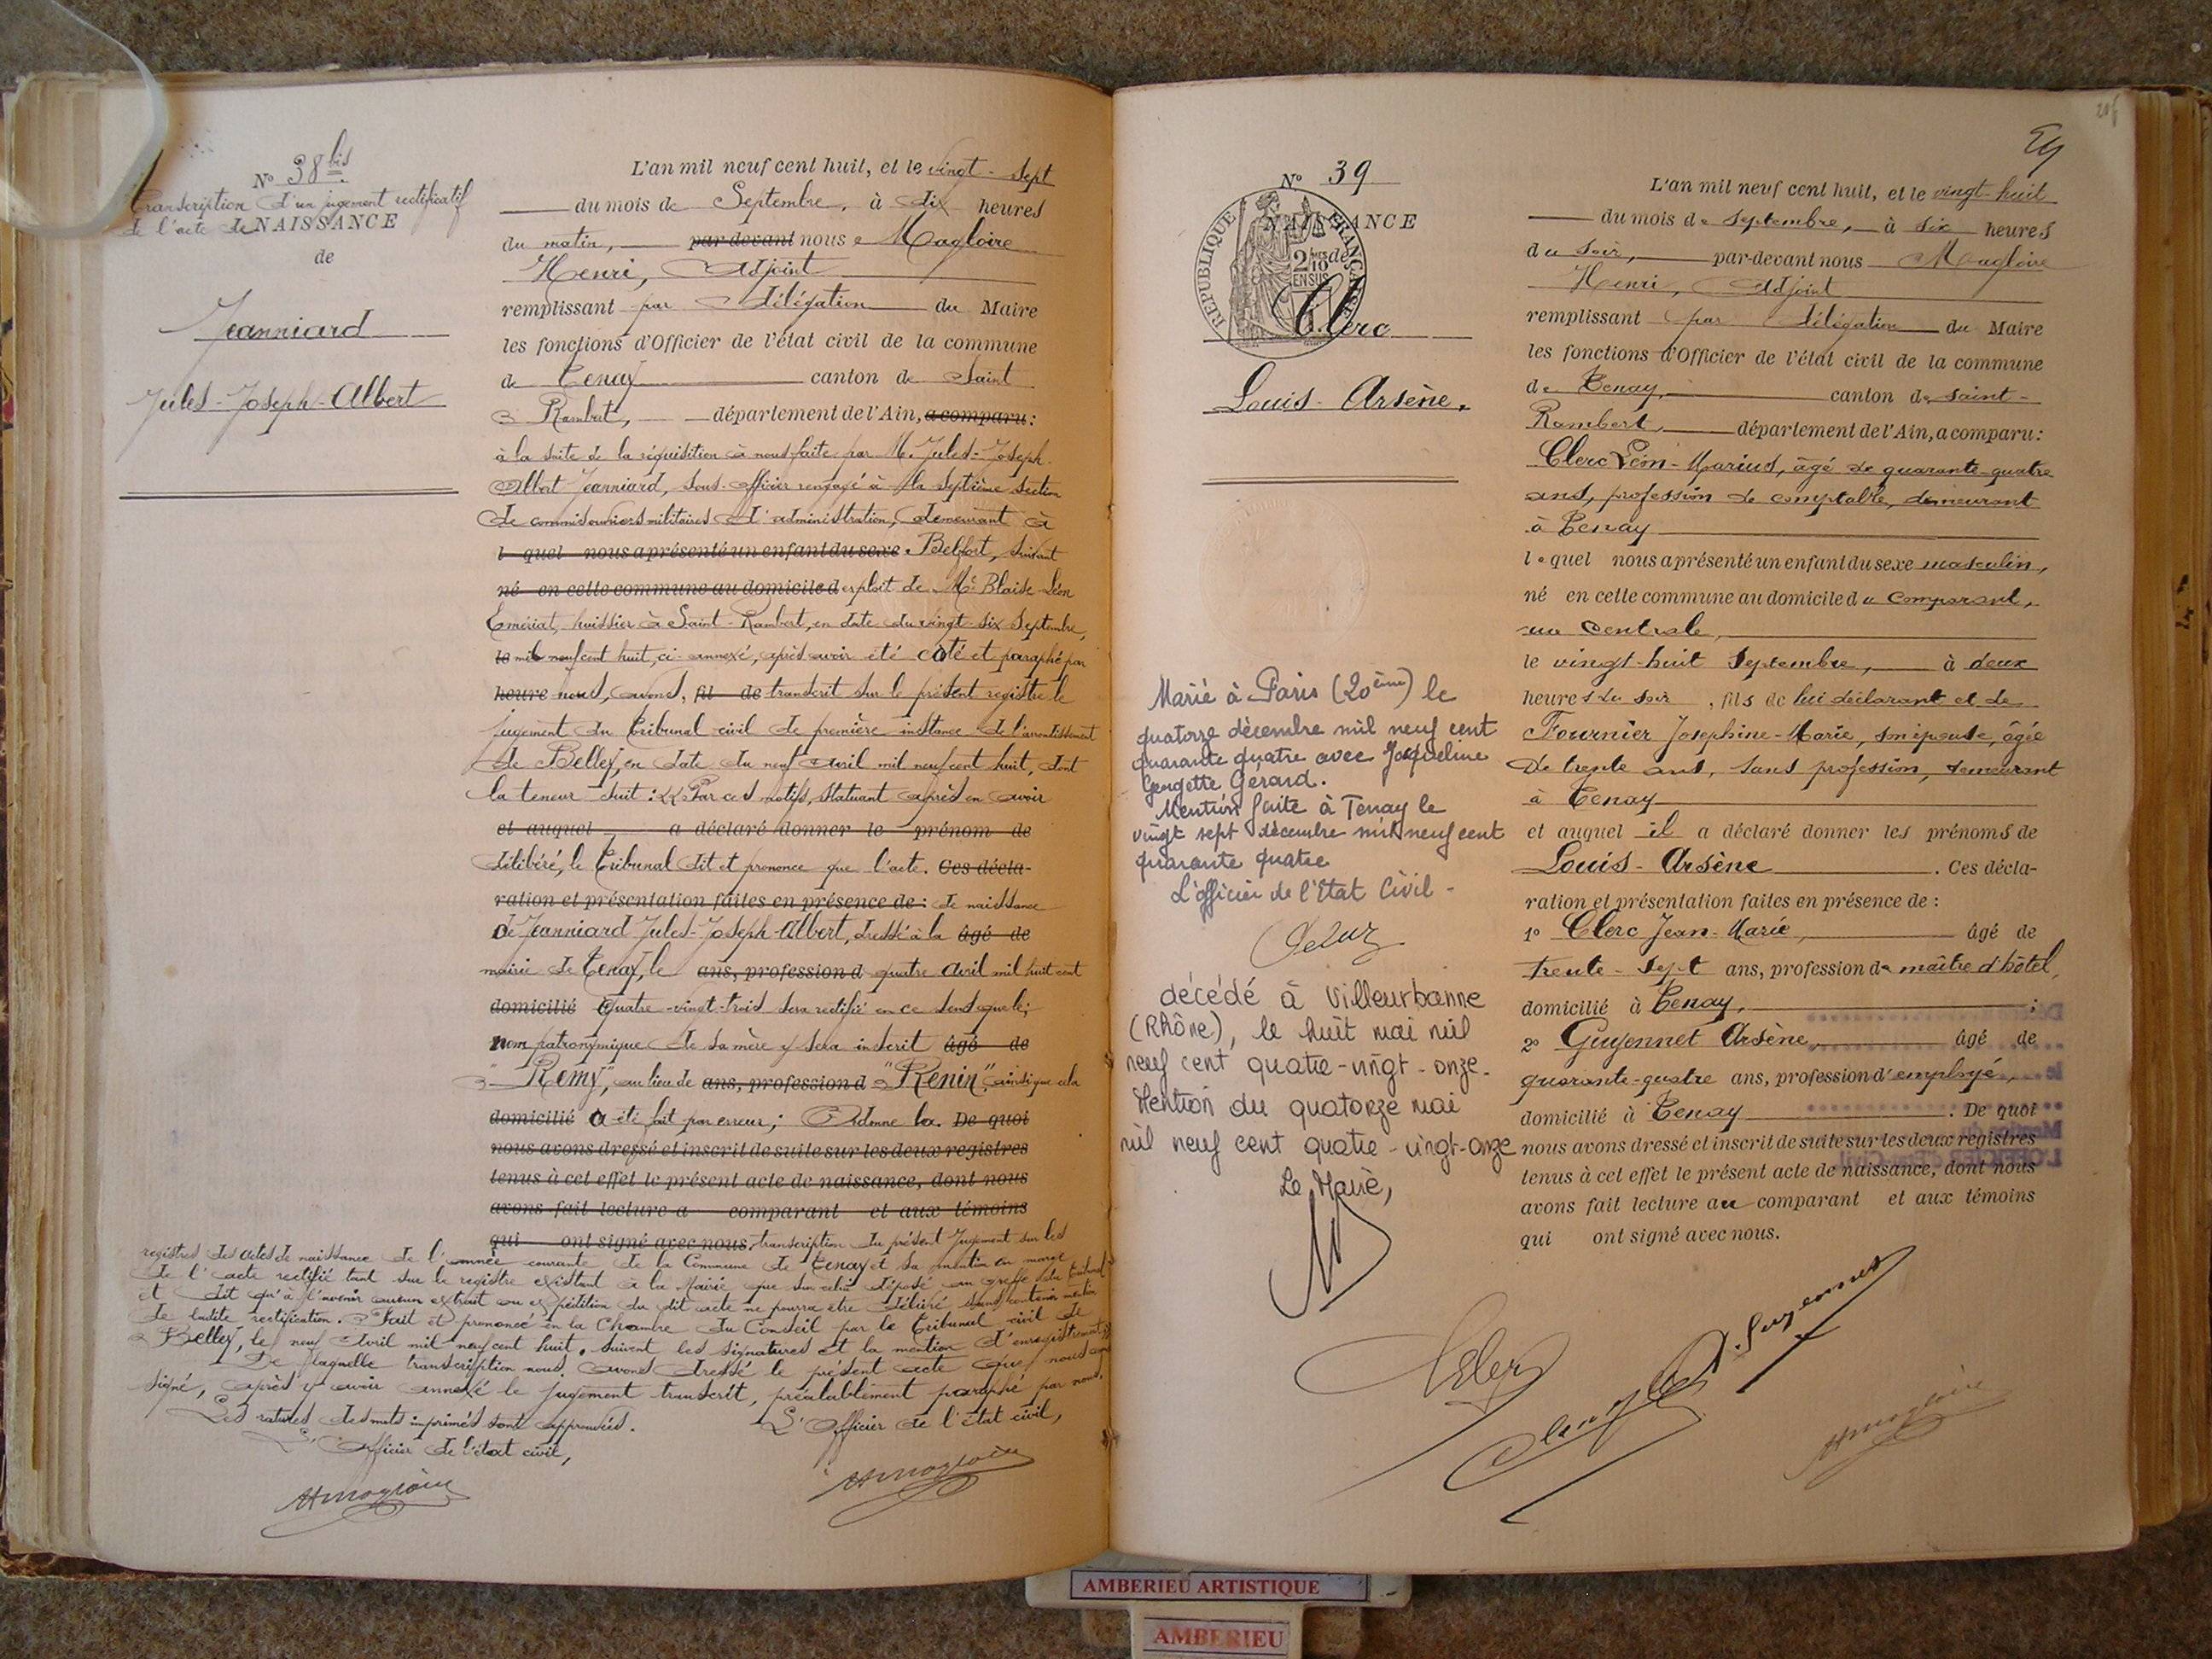 N° 38 bis
Transcription d'un jugement rectificatif
de l'acte de NAISSANCE
de
Jeanniard
Jules-Joseph-Albert
L'an mil neuf cent huit, et le vingt-sept
du mois de Septembre, à dix heures
du matin, par devant nous Magloire
Henri, Adjoint
remplissant par délégation du Maire
les fonctions d'Officier de l'état civil de la commune
de Tenay canton de Saint
Rambert, département de l'Ain, a comparu:
à la suite de la réquisition à nous faite par M. Jules-Joseph
Albert Jeanniard, sous-officier rengagé à la septième section
de commis ouvriers militaires d'administration, demeurant à
l quel nous a présenté un enfant du sexe Belfort, suivant
né en cette commune au domicile d exploit de Me Blaise-Léon
Emériat, huissier à Saint-Rambert, en date du vingt-six Septembre,
le mil neuf cent huit, ci-annexé, après avoir été coté et paraphé par
heure nous, avons, fil de transcrit sur le présent registre le
jugement du tribunal civil de première instance de l'arrondissement
de Belley, en date du neuf avril mil neuf cent huit, dont
la teneur suit : « Par ces motifs, statuant après en avoir
et auquel a déclaré donner le prénom de
délibéré, le tribunal dit et prononce que l'acte. Ces décla-
ration et présentation faites en présence de : de naissance
de Jeanniard Jules-Joseph-Albert, dressé à la âgé de
mairie de Tenay, le ans, profession d quatre avril mil huit cent
domicilié quatre-vingt-trois sera rectifié en ce sens que le
nom patronymique de sa mère y sera inscrit âgé de
"Remy", au lieu de ans, profession d "Renin", ainsi que cela
domicilié a été fait par erreur; Ordonne la. De quoi
nous avons dressé et inscrit de suite sur les deux registres
tenus à cet effet le présent acte de naissance, dont nous
avons fait lecture a comparant et aux témoins
qui ont signé avec nous. transcription du présent jugement sur les
registres des actes de naissance de l'année courante de la Commune de Tenay et sa mention en marge
de l'acte rectifié tant sur le registre existant à la Mairie que sur celui déposé au greffe du tribunal
et dit qu'à l'avenir aucun extrait ou expédition du dit acte ne pourra être délivré sans contenir mention
de ladite rectification. Fait et prononcé en la Chambre du Conseil par le tribunal civil de
Belley, le neuf avril mil neuf cent huit. Suivent les signatures et la mention d'enregistrement
De laquelle transcription nous avons dressé le présent acte que nous avons
signé, après y avoir annexé le jugement transcrit, préalablement paraphé par nous.
Les ratures des mots imprimés sont approuvées. L'Officier de l'état civil,
L'Officier de l'état civil,
HMagloire
HMagloire
N° 39
NAISSANCE
de
REPUBLIQUE FRANCAISE
2 10
EN SUS
Clerc
Louis-Arsène.
Marié à Paris (20ème) le
quatorze décembre mil neuf cent
quarante quatre avec Jacqueline
Georgette Gerard.
Mention faite à Tenay le
vingt sept décembre mil neuf cent
quarante quatre
L'officier de l'Etat Civil -
décédé à Villeurbanne
(Rhône), le huit mai mil
neuf cent quatre-vingt-onze.
Mention du quatorze mai
mil neuf cent quatre-vingt-onze
Le Maire,
L'an mil neuf cent huit, et le vingt-huit
du mois de septembre, à six heures
du soir, par-devant nous Magloire
Henri, Adjoint
remplissant par délégation du Maire
les fonctions d'Officier de l'état civil de la commune
de Tenay, canton de saint-
Rambert, département de l'Ain, a comparu:
Clerc Léon-Marius, âgé de quarante-quatre
ans, profession de comptable, demeurant
à Tenay
lequel nous a présenté un enfant du sexe masculin,
né en cette commune au domicile du comparant,
rue Centrale,
le vingt-huit Septembre, à deux
heures du soir, fils de lui déclarant et de
Fournier Joséphine-Marie, son épouse, âgée
de trente ans, sans profession, demeurant
à Tenay
et auquel il a déclaré donner les prénoms de
Louis-Arsène. Ces décla-
ration et présentation faites en présence de :
1° Clerc Jean-Marie, âgé de
trente-sept ans, profession de maître d'hôtel,
domicilié à Tenay, ;
2° Guyennet Arsène, âgé de
quarante-quatre ans, profession d'employé,
domicilié à Tenay. De quoi
nous avons dressé et inscrit de suite sur les deux registres
tenus à cet effet le présent acte de naissance, dont nous
avons fait lecture au comparant et aux témoins
qui ont signé avec nous.
HMagloire
AMBERIEU ARTISTIQUE
AMBERIEU